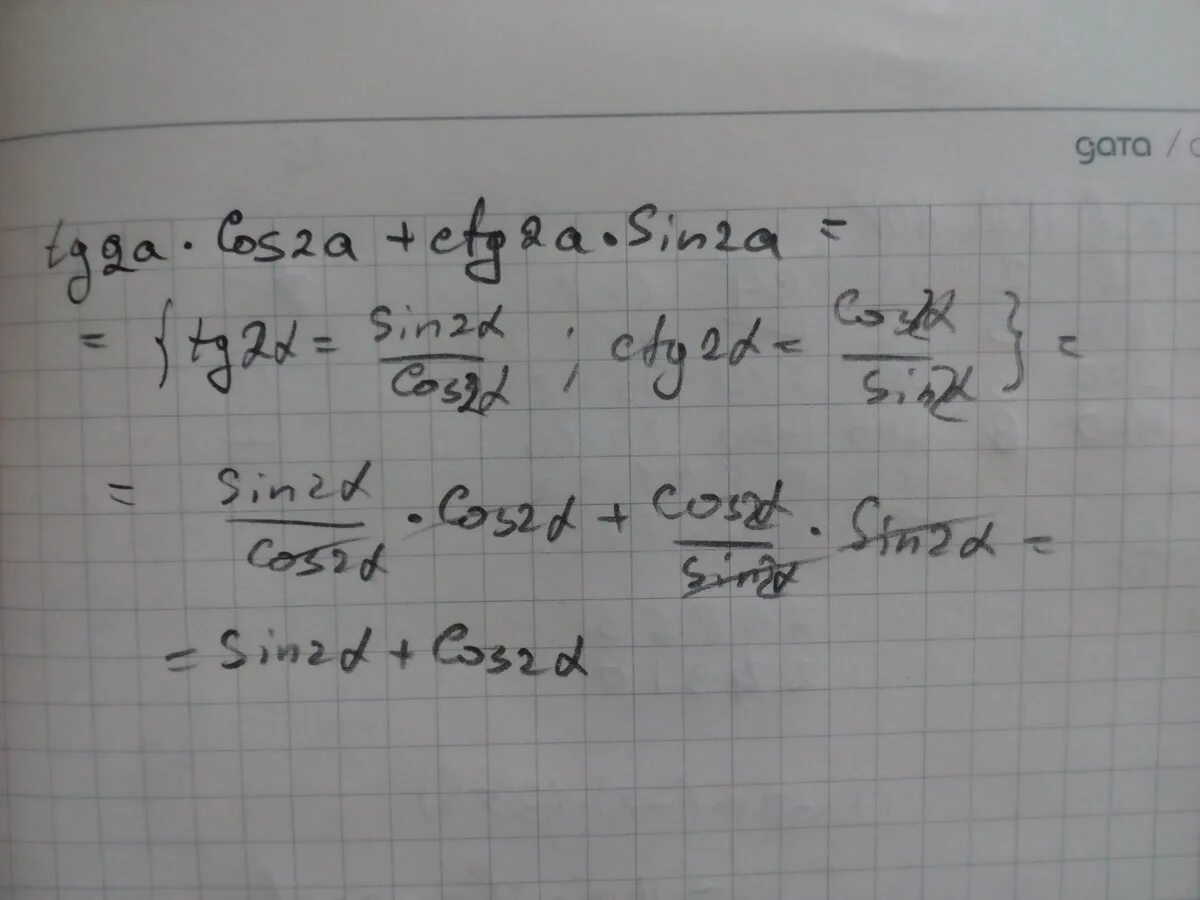 дата /
tg2a · Cos2a + ctg2a · Sin2a =
= {tg2α = sin2α/Cos2α ; ctg2α = Cos2α/Sin2α} =
= Sin2α/Cos2α · Cos2α + Cos2α/Sin2α · Sin2α =
= Sin2α + Cos2α